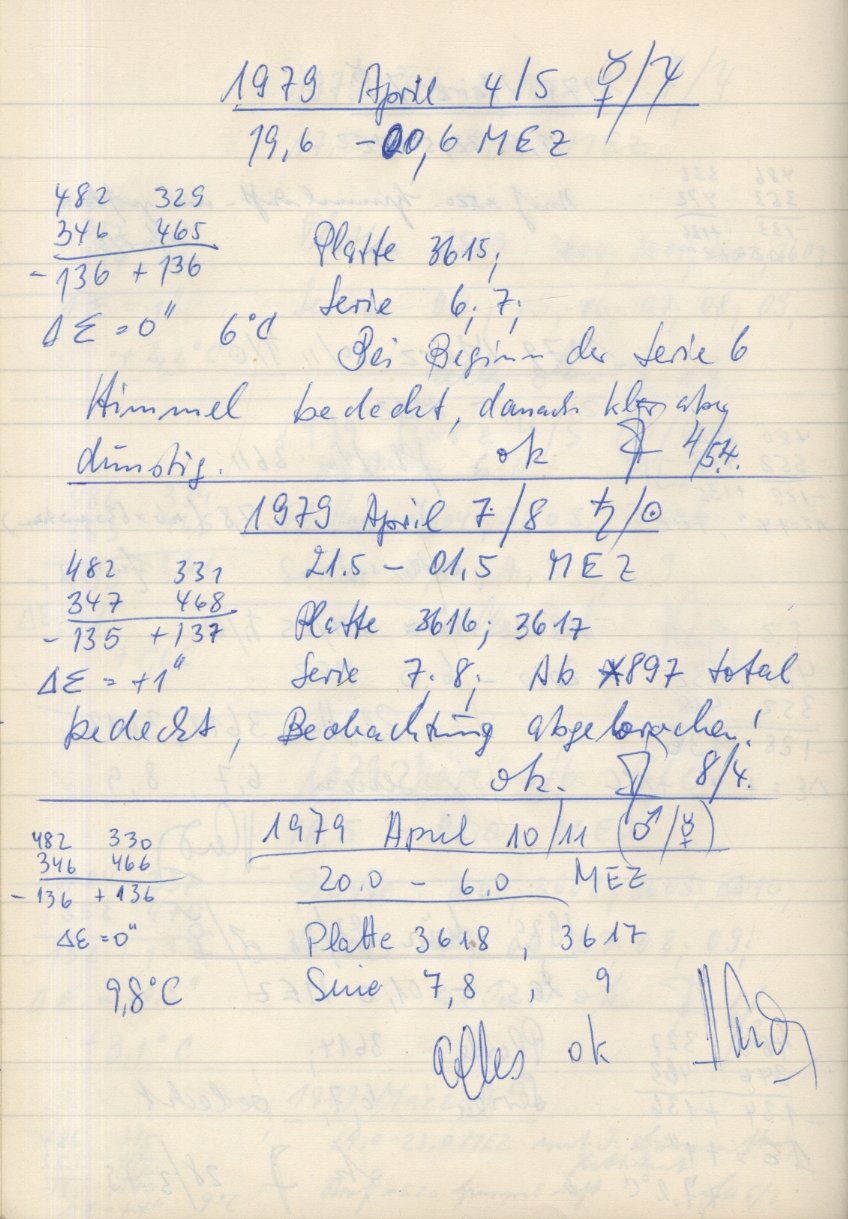 1979 April 4/5 ☿/♃
19,6 - 00,6 MEZ
482 329
346 465
-136 +136
Platte 3615;
Serie 6; 7;
Δε = 0" 6°C
Bei Beginn der Serie 6
Himmel bedeckt, danach klar aber
dunstig. ok 4/5.4.
1979 April 7/8 ♄/☉
482 331
21.5 - 01,5 MEZ
347 468
-135 +137
Platte 3616; 3617
Δε = +1"
Serie 7; 8; Ab *897 total
bedeckt, Beobachtung abgebrochen!
ok. 8/4.
1979 April 10/11 (♂/☿)
482 330
346 466
-136 +136
20.0 - 6.0 MEZ
Δε = 0"
Platte 3618, 3617
9,8°C
Serie 7,8, 9
alles ok